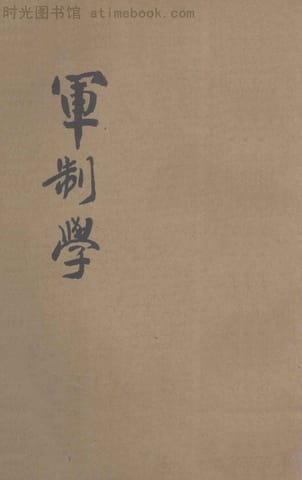 时光图书馆 atimebook.com
軍制學